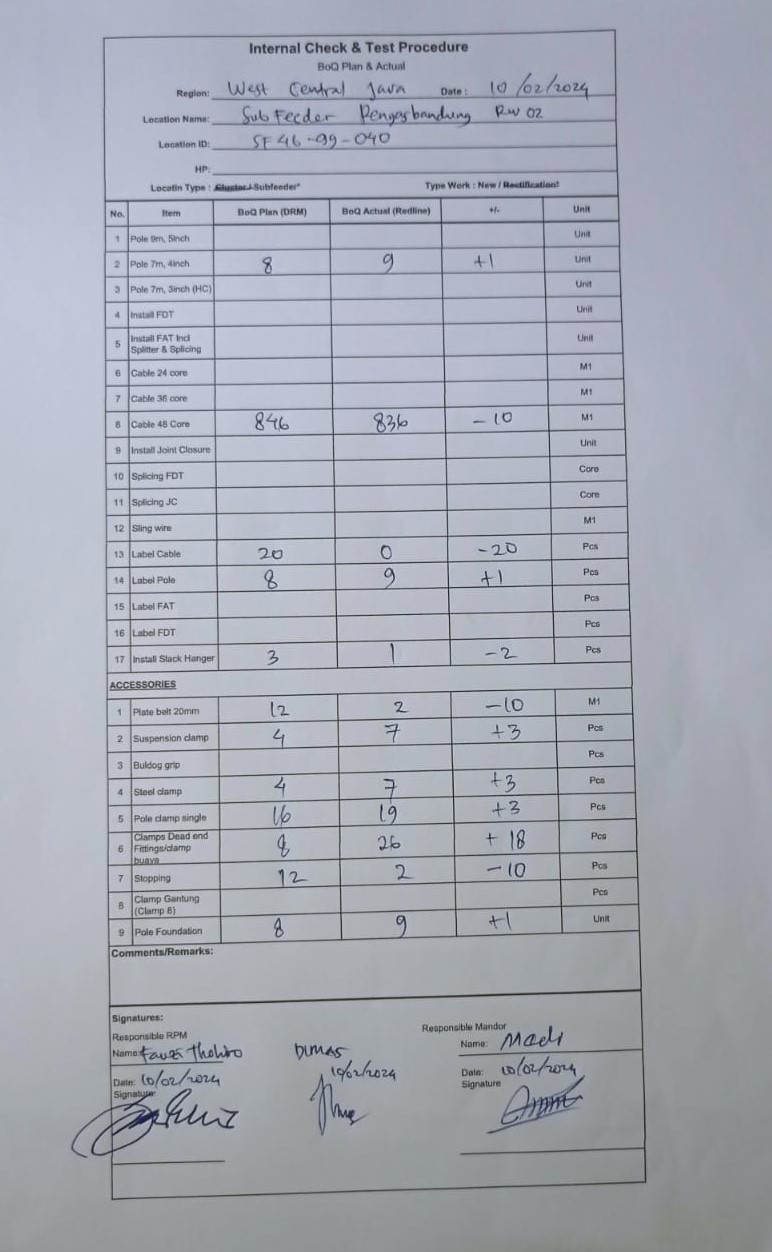 Internal Check & Test Procedure
BoQ Plan & Actual
Region: West Central Java Date: 10/02/2024
Location Name: Sub Feeder Pengasbandung RW 02
Location ID: SF 46-99-040
HP:
Locatin Type : Cluster / Subfeeder* Type Work : New / Rectification*
No. Item BoQ Plan (DRM) BoQ Actual (Redline) +/- Unit
1 Pole 9m, 5inch Unit
2 Pole 7m, 4inch 8 9 +1 Unit
3 Pole 7m, 3inch (HC) Unit
4 Install FDT Unit
5 Install FAT Incl Splitter & Splicing Unit
6 Cable 24 core M1
7 Cable 36 core M1
8 Cable 48 Core 846 836 -10 M1
9 Install Joint Closure Unit
10 Splicing FDT Core
11 Splicing JC Core
12 Sling wire M1
13 Label Cable 20 0 -20 Pcs
14 Label Pole 8 9 +1 Pcs
15 Label FAT Pcs
16 Label FDT Pcs
17 Install Slack Hanger 3 1 -2 Pcs
ACCESSORIES
1 Plate belt 20mm 12 2 -10 M1
2 Suspension clamp 4 7 +3 Pcs
3 Buldog grip Pcs
4 Steel clamp 4 7 +3 Pcs
5 Pole clamp single 16 19 +3 Pcs
6 Clamps Dead end Fittings/clamp buaya 8 26 +18 Pcs
7 Stopping 12 2 -10 Pcs
8 Clamp Gantung (Clamp 8) Pcs
9 Pole Foundation 8 9 +1 Unit
Comments/Remarks:
Signatures:
Responsible RPM Responsible Mandor
Name: Fauzi Dimas Name: Madi
Date: 10/02/2024 10/02/2024 Date: 10/02/2024
Signature Signature